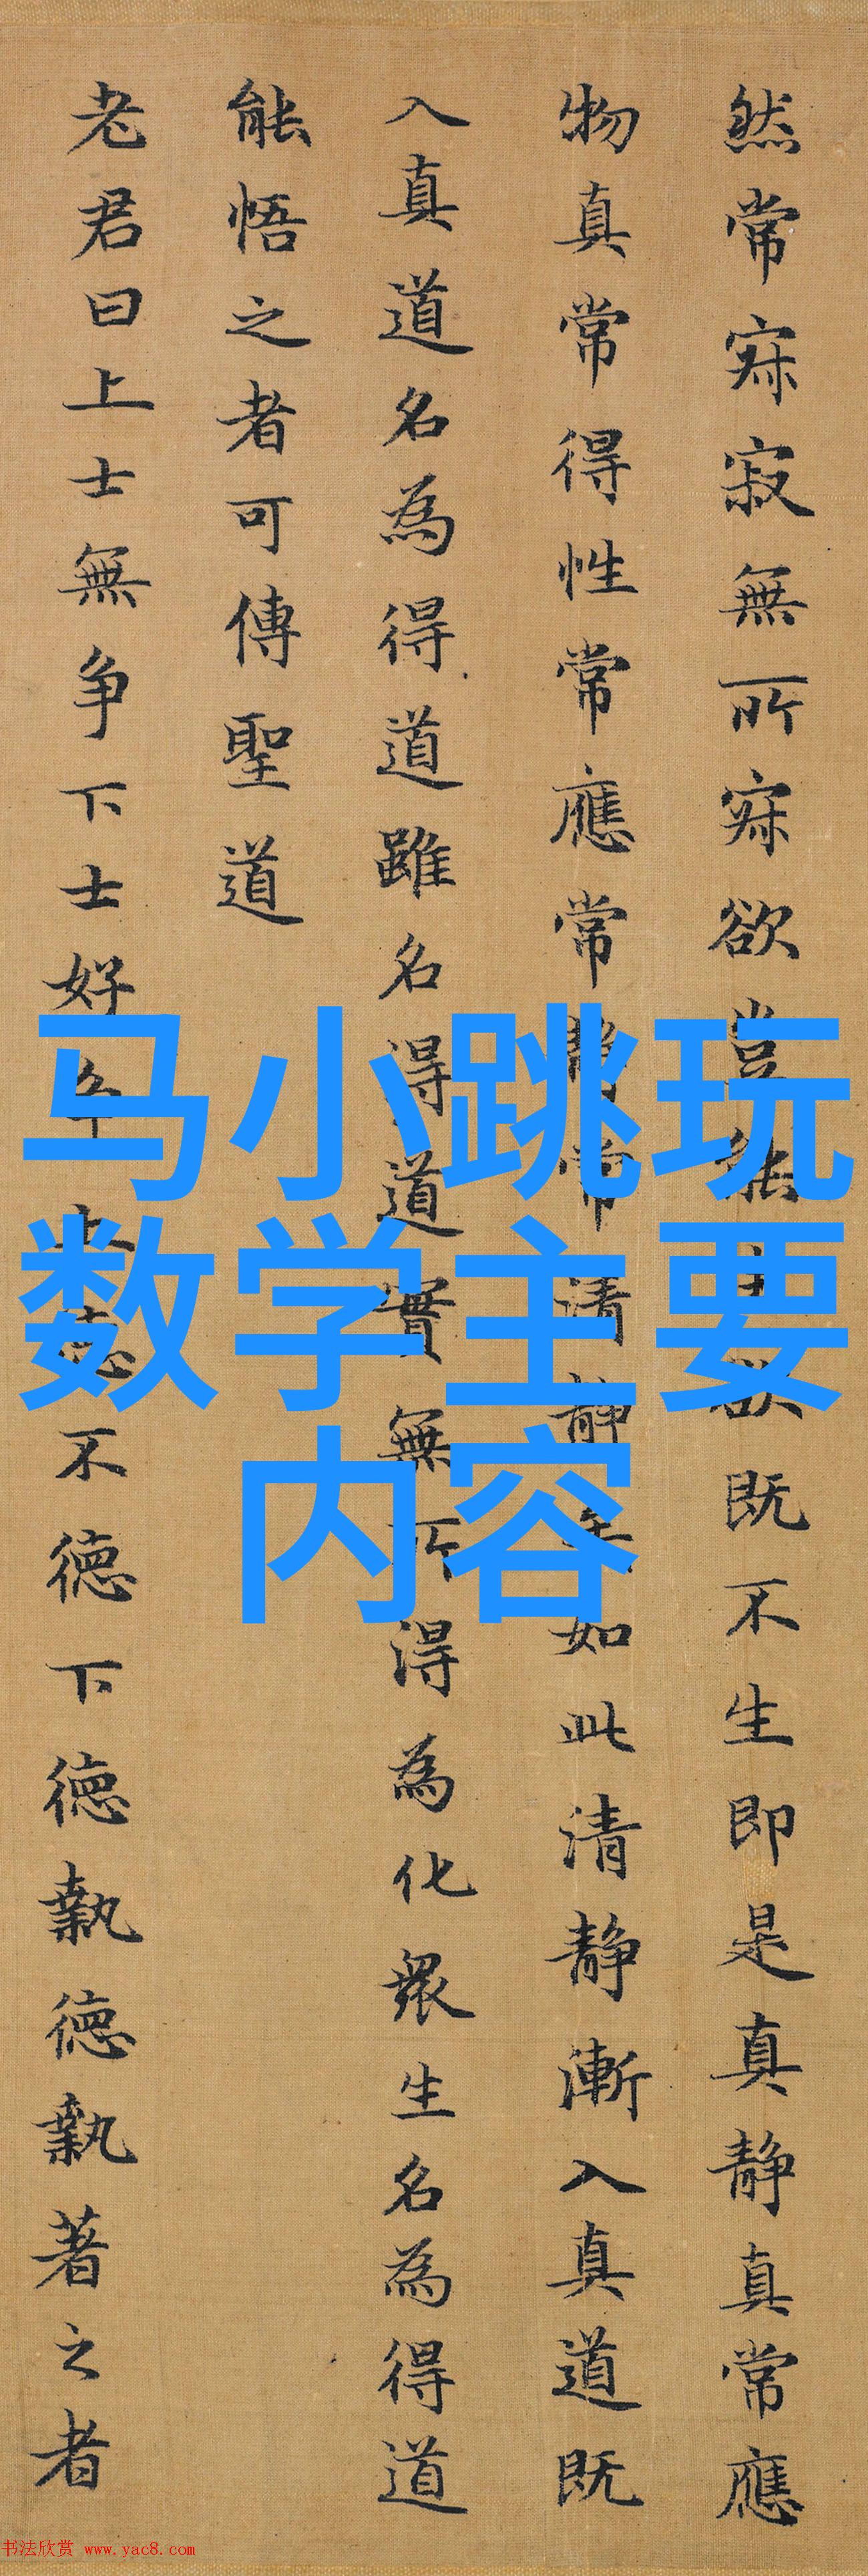 然常寂寂無所寂欲豈能生欲既不生即是真静真常應
物真常得性常應常静常清静矣如此清静漸入真道既
入真道名為得道雖名得道實無所得為化衆生名為得道
能悟之者可傳聖道
老君曰上士無争下士好争上德不德下德執德執著之者
马小跳玩
数学主要
内容
书法欣赏 www.yac8.com